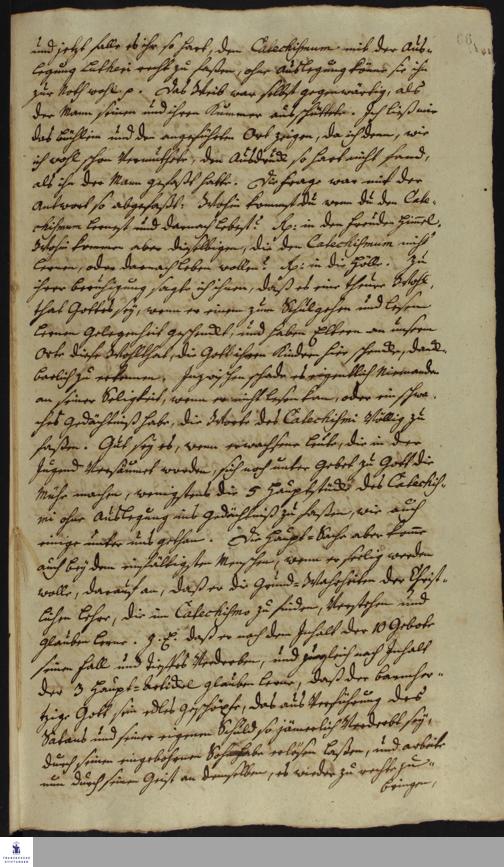 und jetzt falle es ihr so hart, den Catechismum mit der Aus-
legung Lutheri recht zu faßen, ohne Auslegung könne sie ihn
zur Noth wohl p. Das Weib war selbst gegenwärtig, als
der Mann seinen und ihren Kummer ausschüttete. Ich ließ mir
das Büchlein und den angeführten Ort zeigen, da ich denn, wie
ich wohl schon vermuthete, den Ausdruck so hart nicht fand,
als ihn der Mann gefaßt hatte. Die Frage war mit der
Antwort so abgefaßt: Wohin kommst du wenn du den Cate-
chismum lernest und darnach lebest? Rp: in den Freuden Himmel.
Wohin kommen aber diejenigen, die den Catechismum nicht
lernen, oder darnach leben wollen? Rp: in die Hölle. Zu
ihrer Beruhigung sagte ich ihnen, daß es eine theure Wohl-
that Gottes sey, wenn er einem zum Schulgehen und lesen
lernen Gelegenheit geschenkt und haben Eltern an unserm
Orte diese Wohlthat, die Gott ihren Kindern hier schenke, dank-
barlich zu erkennen. Inzwischen schade es eigentlich Niemanden
an seiner Seligkeit, wenn er nicht lesen kan, oder ein schwa-
ches Gedächtniß habe, die Worte des Catechismi völlig zu
faßen. Gut sey es, wenn erwachsene Leute, die in der
Jugend versäumet worden, sich noch unter Gebet zu Gott die
Mühe machen, wenigstens die 5 Hauptstücke des Catechis-
mi ohne Auslegung ins Gedächtniß zu faßen, wie auch
einige unter uns gethan. Die Haupt-Sache aber komme
auch bey dem einfältigsten Menschen, wenn er seelig werden
wolle, darauf an, daß er die Grund-Wahrheiten der Christ-
lichen Lehre, die im Catechismo zu finden, verstehen und
glauben lerne. z. E. daß er nach dem Inhalt der 10 Gebote
seinen Fall und tiefes Verderben, und zugleich nach Inhalt
der 3 Haupt-Artickel glauben lerne, daß der barmher-
tzige Gott sein edles Geschöpf, das aus Verführung des
Satans und seiner eigenen Schuld so jämerlich verderbt sey,
durch seinen eingebohrnen Sohn habe erlösen laßen, und arbeite
nun durch seinen Geist an demselben, es wieder zu rechte zu-
bringen,
FRANCKESCHE
STIFTUNGEN